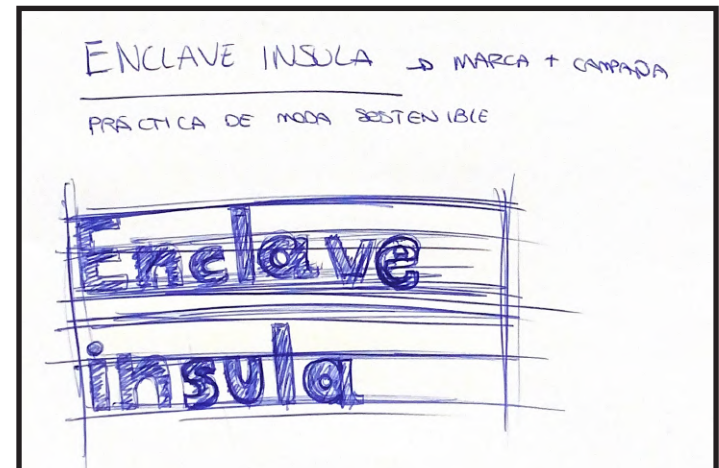 ENCLAVE INSULA → MARCA + CAMPAÑA
PRÁCTICA DE MODA SOSTENIBLE
Enclave
insula